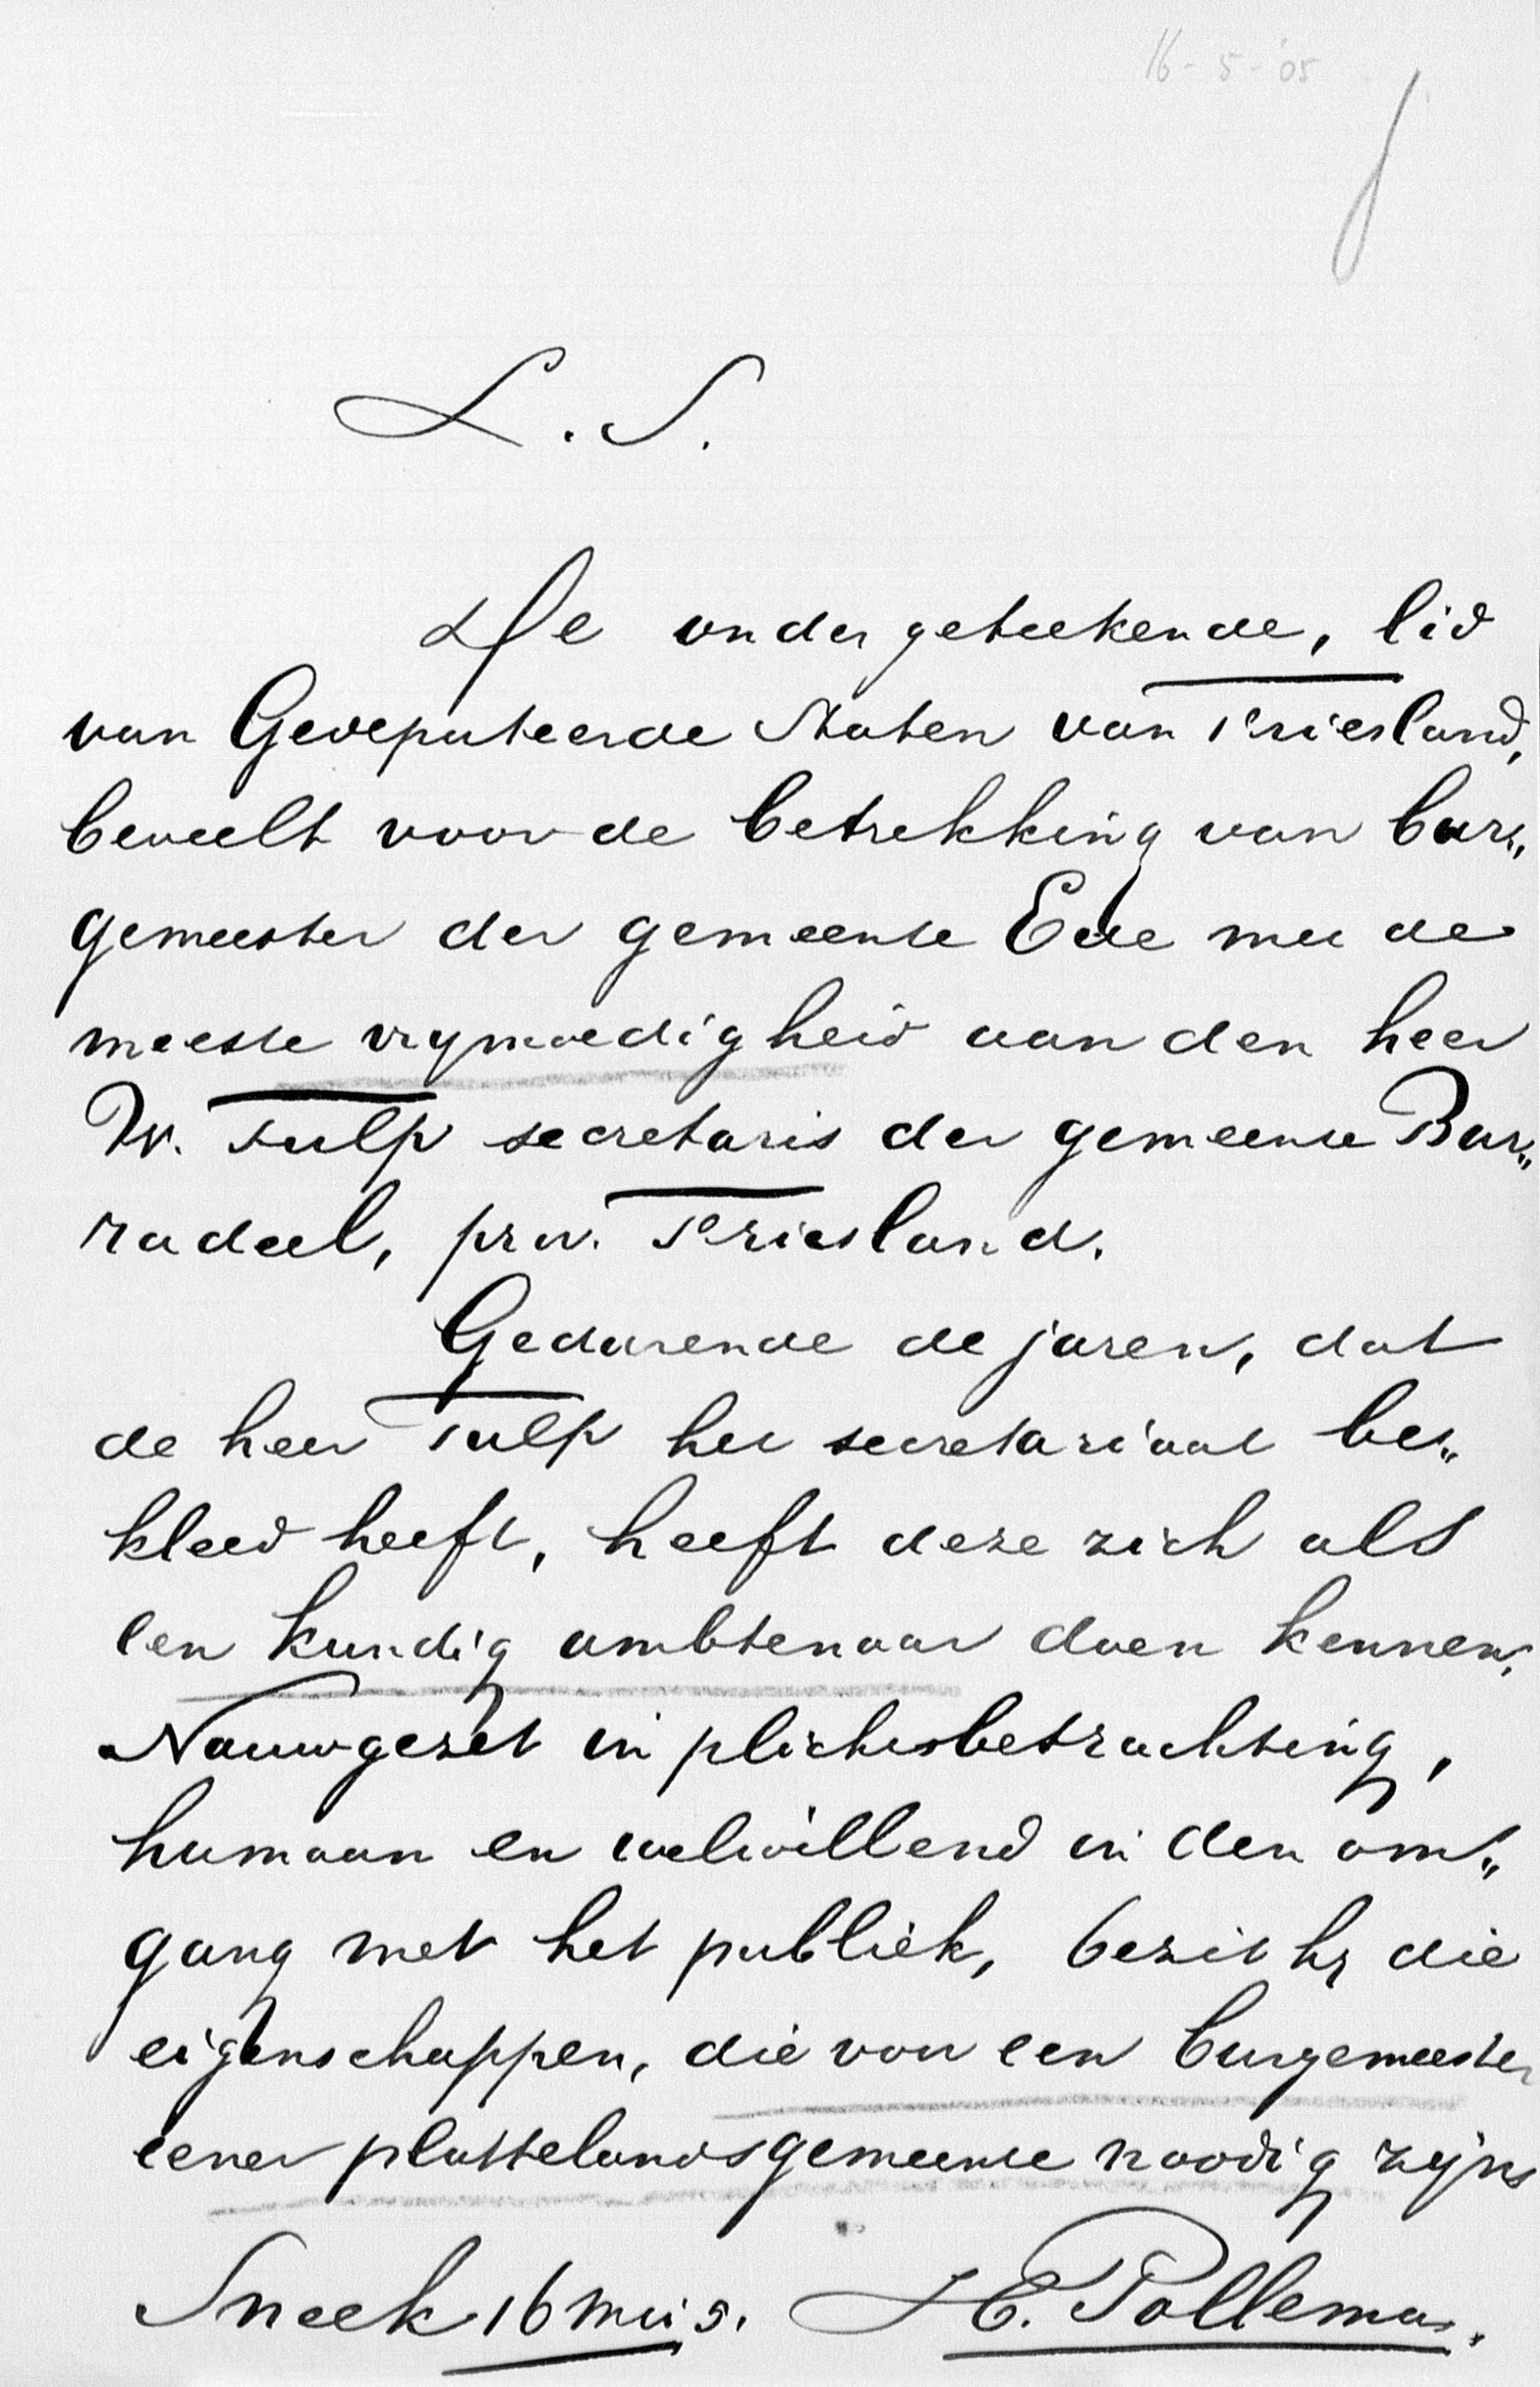 16-5-'05
L. S.
De ondergeteekende, lid
van Gedeputeerde Staten van Friesland,
beveelt voor de betrekking van bur„
gemeester der gemeente Ede met de
meeste vrijmoedigheid aan den heer
W. Tulp secretaris der gemeente Bar„
radeel, prov. Friesland.
Gedurende de jaren, dat
de heer Tulp het secretariaat be„
kleed heeft, heeft deze zich als
een kundig ambtenaar doen kennen,
Nauwgezet in plichtsbetrachting,
humaan en welwillend in den om„
gang met het publiek, bezit hij die
eigenschappen, die voor een burgemeester
eener plattelandsgemeente noodig zijn.
Sneek 16 Mei 5. H. Pollema.